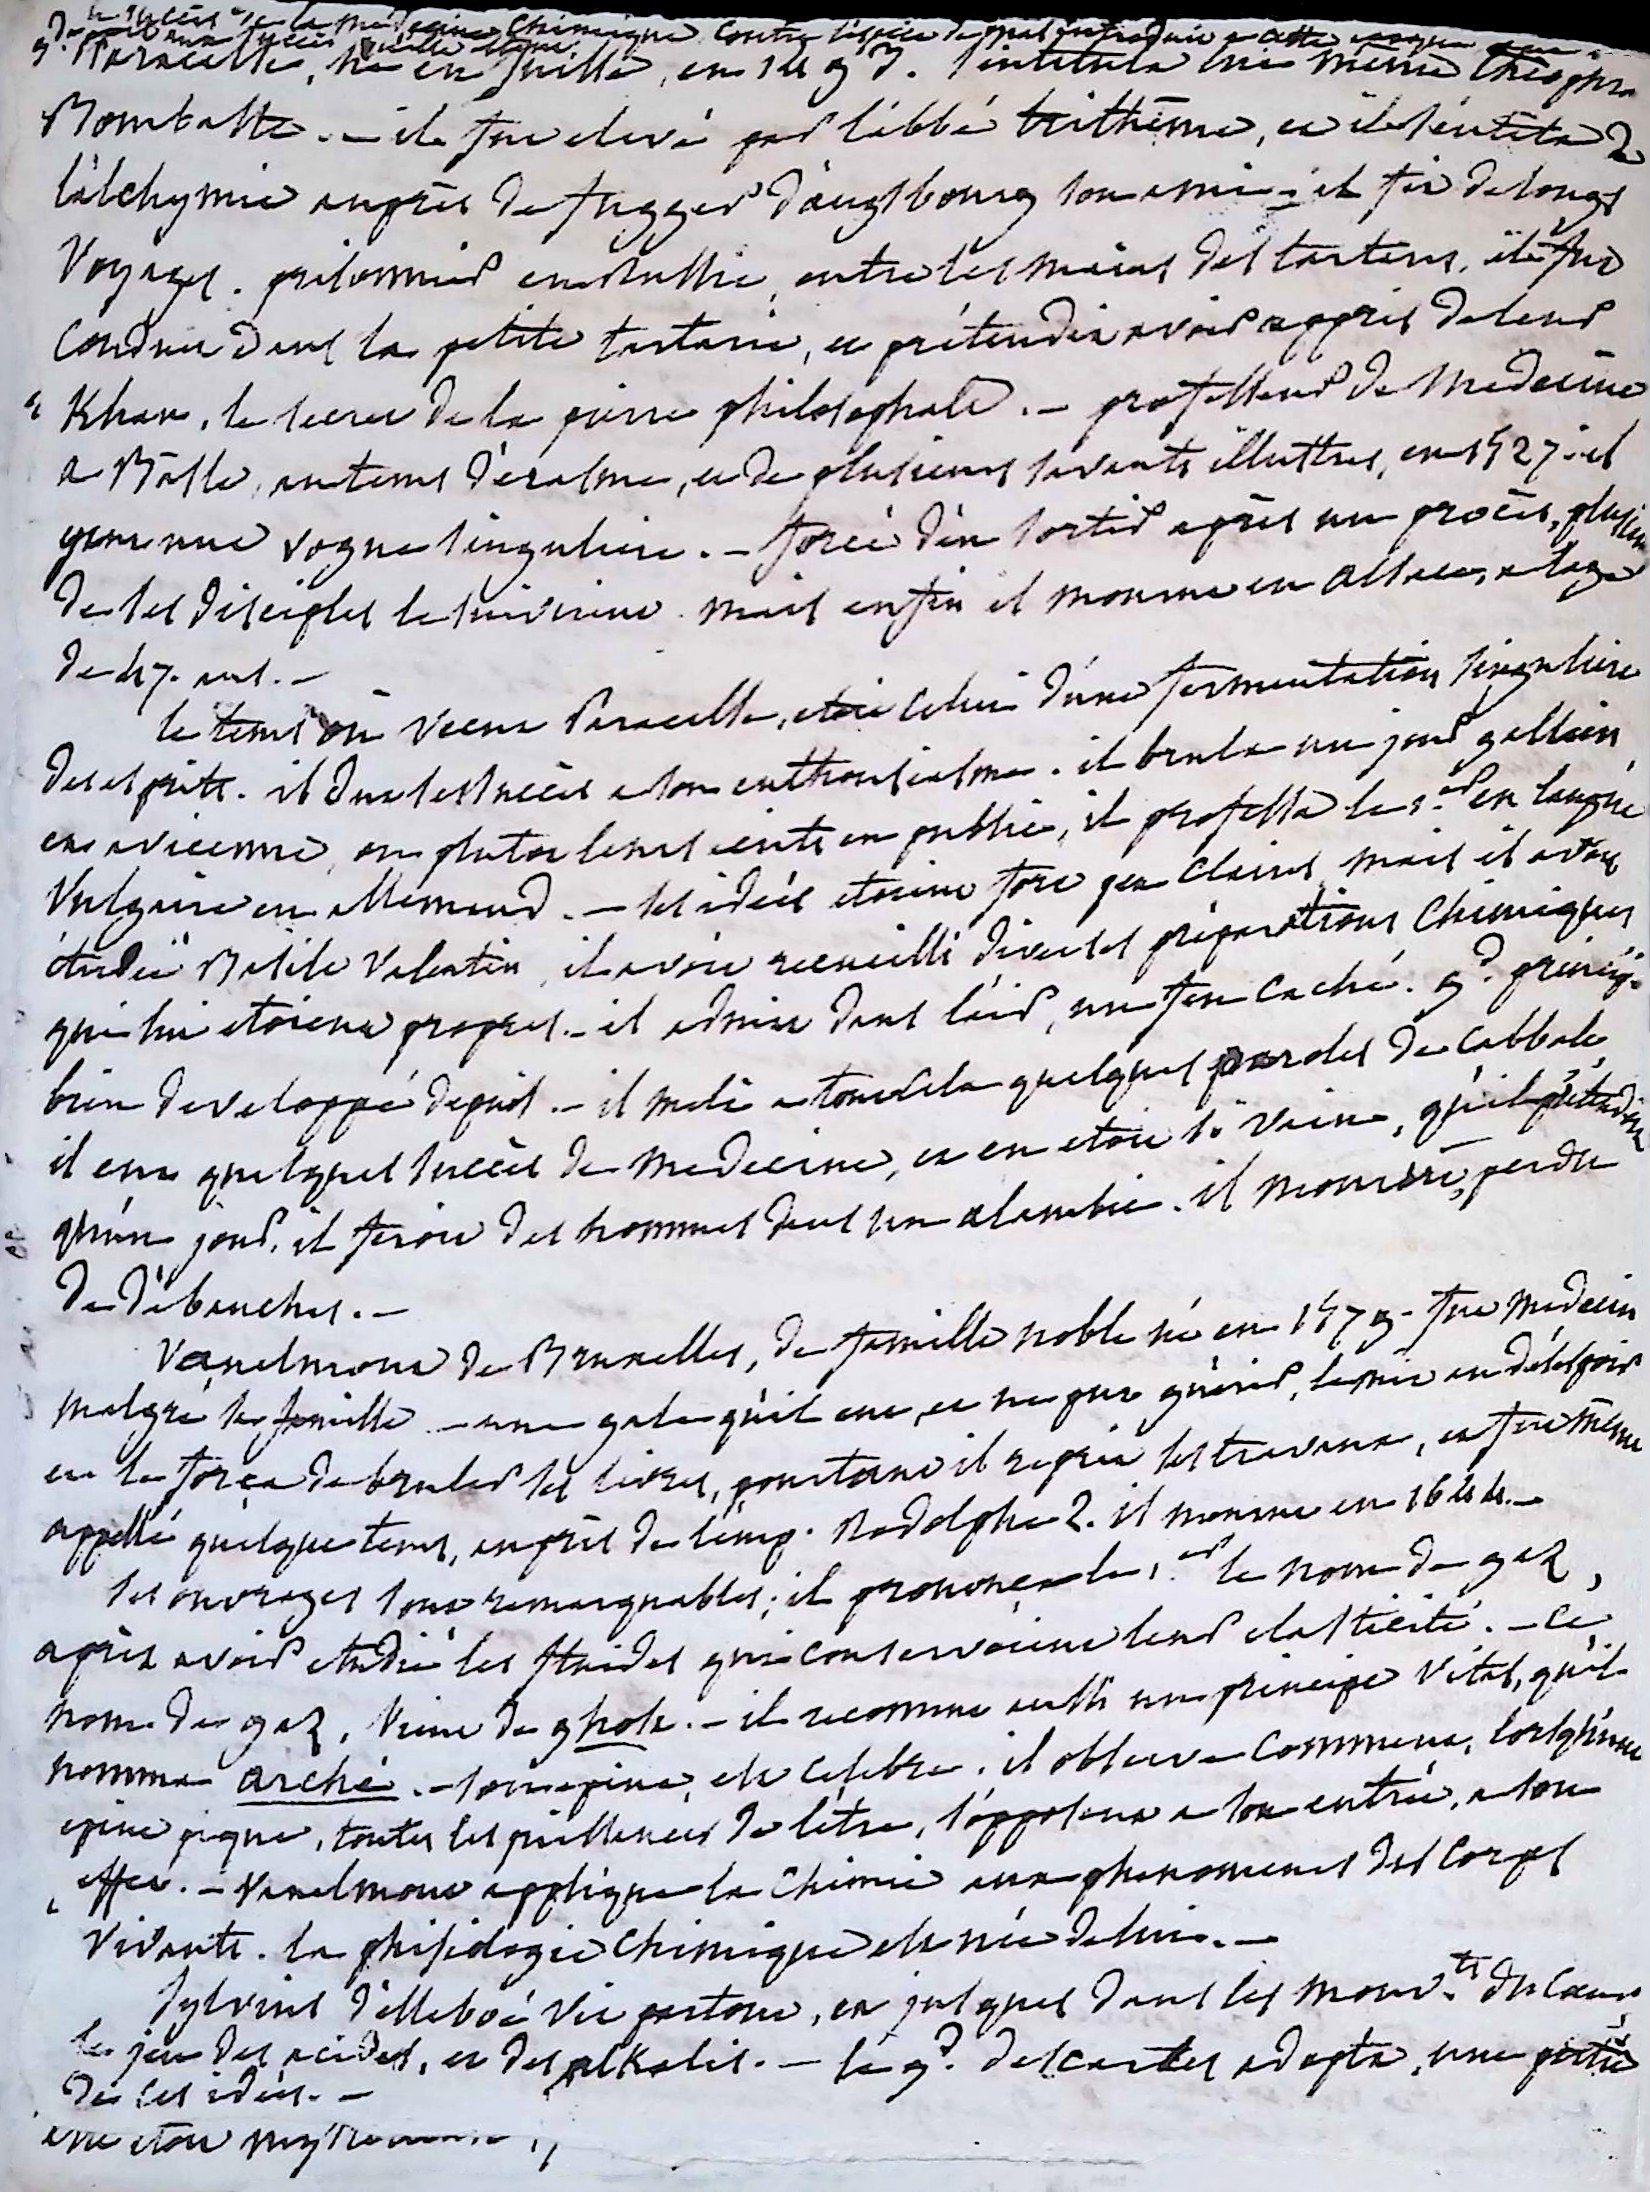 succès de la médecine Chimique contre l'espèce de mal introduit a cette époque
Paracelse, né en Suisse, en 1493. s'intitula lui même théophra
Bombaste. – il fut elevé par l'abbé trithême, et il s'entêta de
l'alchymie auprès de fugger d'augsbourg son ami – il fit de longs
Voyages. prisonnier en Russie, entre les mains des tartares, il fut
Conduit dans la petite tartarie, et prétendit avoir appris de leur
Khan, le secret de la pierre philosophale. – professeur de Medecine
a Basle, au tems d'erasme, et de plusieurs savants illustres, en 1527. il
y eut une vogue singuliere. – forcé d'en sortir après un procès, plusieurs
de ses disciples le suivirent. mais enfin il mourut en Alsace, a l'age
de 47. ans. –
le tems où vécut Paracelse, etait celui d'une fermentation singuliere
des esprits. il dut ses succès a son enthousiasme. il brula un jour gallien
et avicenne, ou plutot leurs ecrits en public, il professa le 1.er en langue
Vulgaire en allemand. – ses idées etoient fort peu claires, mais il avait
étudié Basile Valentin, il avoit recueilli diverses préparations Chimiques
qui lui etoient propres. – il admit dans l'air, un feu caché. gd. princip.
bien developpé depuis. – il mela a tout cela quelques paroles de cabbale,
il eut quelques succès de medecine, et en etoit si vain, qu'il prétendoit
qu'un jour, il feroit des hommes dans un alambic. il mourut, perdu
de débauches. –
Vanelmont de Bruxelles, de famille noble né en 1577 – fut medecin
malgré sa famille – une gale qu'il eut, et ne put guérir, le mit au désespoir
et le força de bruler ses livres, pourtant il reprit ses travaux, et fut même
appellé quelque tems, auprès de l'emp. Rodolphe 2. il mourut en 1644. –
ses ouvrages sont remarquables; il prononça le 1.er le nom de gaz,
après avoir etudié les fluides qui conservoient leur elasticité. – Ce
nom de gaz, vient de ghots. – il reconnut aussi un principe vital, qu'il
nomma arché. – son epine, est celebre. il observe comment, lorsqu'une
epine pique, toutes les puissances de l'être, s'opposent a son entrée, a son
effet. – Vanelmont applique la Chimie aux phenomenes des Corps
Vivants. la phisiologie Chimique est née de lui. –
Sylvius Delleboé vit partout, et jusques dans les mouv.ts du Cœur,
le jeu des acides, et des alkalis. – le gd. descartes adopta, une partie
de ses idées. –
etoit